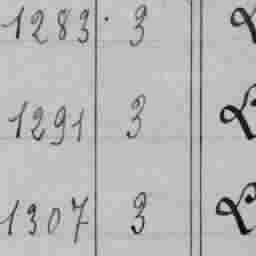 1283 3
1291 3
1307 3